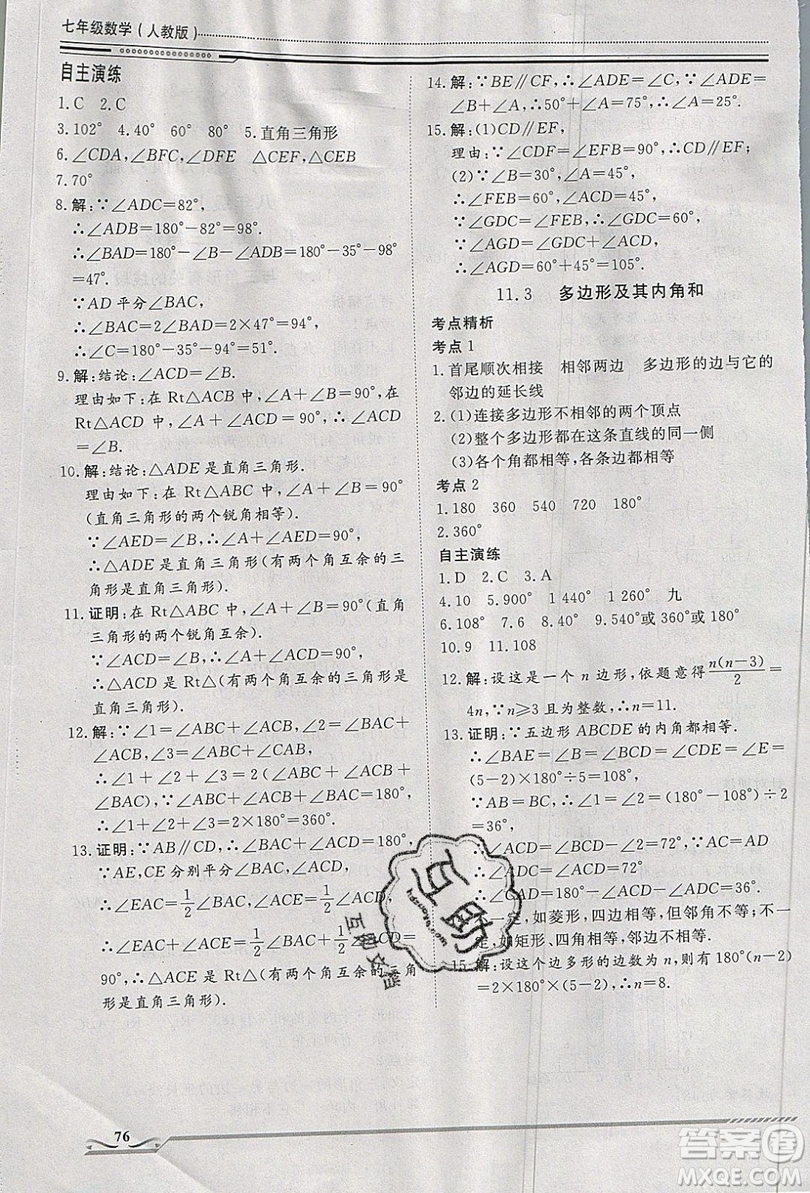 七年级数学(人教版)
自主演练
1.C 2.C
3.102° 4.40° 60° 80° 5.直角三角形
6.∠CDA,∠BFC,∠DFE △CEF,△CEB
7.70°
8.解:∵∠ADC=82°,
∴∠ADB=180°-82°=98°.
∴∠BAD=180°-∠B-∠ADB=180°-35°-98°
=47°.
∵AD平分∠BAC,
∴∠BAC=2∠BAD=2×47°=94°,
∴∠C=180°-35°-94°=51°.
9.解:结论:∠ACD=∠B.
理由如下:在Rt△ABC中,∠A+∠B=90°,在
Rt△ACD中,∠A+∠ACD=90°,∴∠ACD
=∠B.
10.解:结论:△ADE是直角三角形.
理由如下:在Rt△ABC中,∠A+∠B=90°
(直角三角形的两个锐角相等).
∵∠AED=∠B,∴∠A+∠AED=90°.
∴△ADE是直角三角形(有两个角互余的三
角形是直角三角形).
11.证明:在Rt△ABC中,∠A+∠B=90°(直角
三角形的两个锐角互余).
∵∠ACD=∠B,∴∠A+∠ACD=90°.
∴△ACD是Rt△(有两个角互余的三角形是
直角三角形).
12.解:∵∠1=∠ABC+∠ACB,∠2=∠BAC
+∠ACB,∠3=∠ABC+∠CAB,
∴∠1+∠2+∠3=2(∠BAC+∠ACB+
∠ABC),∵∠BAC+∠ACB+∠ABC=180°,
∴∠1+∠2+∠3=2×180°=360°.
13.证明:∵AB∥CD,∴∠BAC+∠ACD=180°,
∵AE,CE分别平分∠BAC,∠ACD,
∴∠EAC=1/2∠BAC,∠ACE=1/2∠ACD,
∴∠EAC+∠ACE=1/2(∠BAC+∠ACD)=
90°,∴△ACE是Rt△(有两个角互余的三角
形是直角三角形).
14.解:∵BE∥CF,∴∠ADE=∠C,∵∠ADE=
∠B+∠A,∴50°+∠A=75°,∴∠A=25°.
15.解:(1)CD∥EF,
理由:∵∠CDF=∠EFB=90°,∴CD∥EF.
(2)∵∠B=30°,∠A=45°,
∴∠FEB=60°,∠ACD=45°.
∵∠GDC=∠FEB,∴∠GDC=60°.
∴∠AGD=∠AGDC+∠ACD,
∴∠AGD=45°+60°=105°.
11.3 多边形及其内角和
考点精析
考点1
1.首尾顺次相接 相邻两边 多边形的边与它的
邻边的延长线
2.(1)连接多边形不相邻的两个顶点
(2)整个多边形都在这条直线的同一侧
(3)各个角都相等,各条边都相等
考点2
1.180 360 540 720 180°
2.360°
自主演练
1.D 2.C 3.A
4.10 5.900° 1 080° 1 260° 九
6.108° 7.6 8.108° 9.540°或360°或180°
10.9 11.108
12.解:设这是一个n边形,依题意得n(n-3)/2=
4n,∵n≥3且为整数,∴n=11.
13.证明:∵五边形ABCDE的内角都相等,
∴∠BAE=∠B=∠BCD=∠CDE=∠E=
(5-2)×180°÷5=108°,
∵AB=BC,∴∠ACB=(180°-108°)÷2
=36°,
∴∠ACD=∠BCD-∠ACB=72°,∵AC=AD
∴∠ADC=∠ACD=72°
∠ADE-∠ADC=36°.
一定,如菱形,四边相等,但邻角不相等;不一
定,如矩形、四角相等,邻边不相等.
15.解:设这个边多形的边数为n,则180°(n-2)
=2×180°(5-2),∴n=8.
互助
互助文档
76
答案圈
MXQE.COM